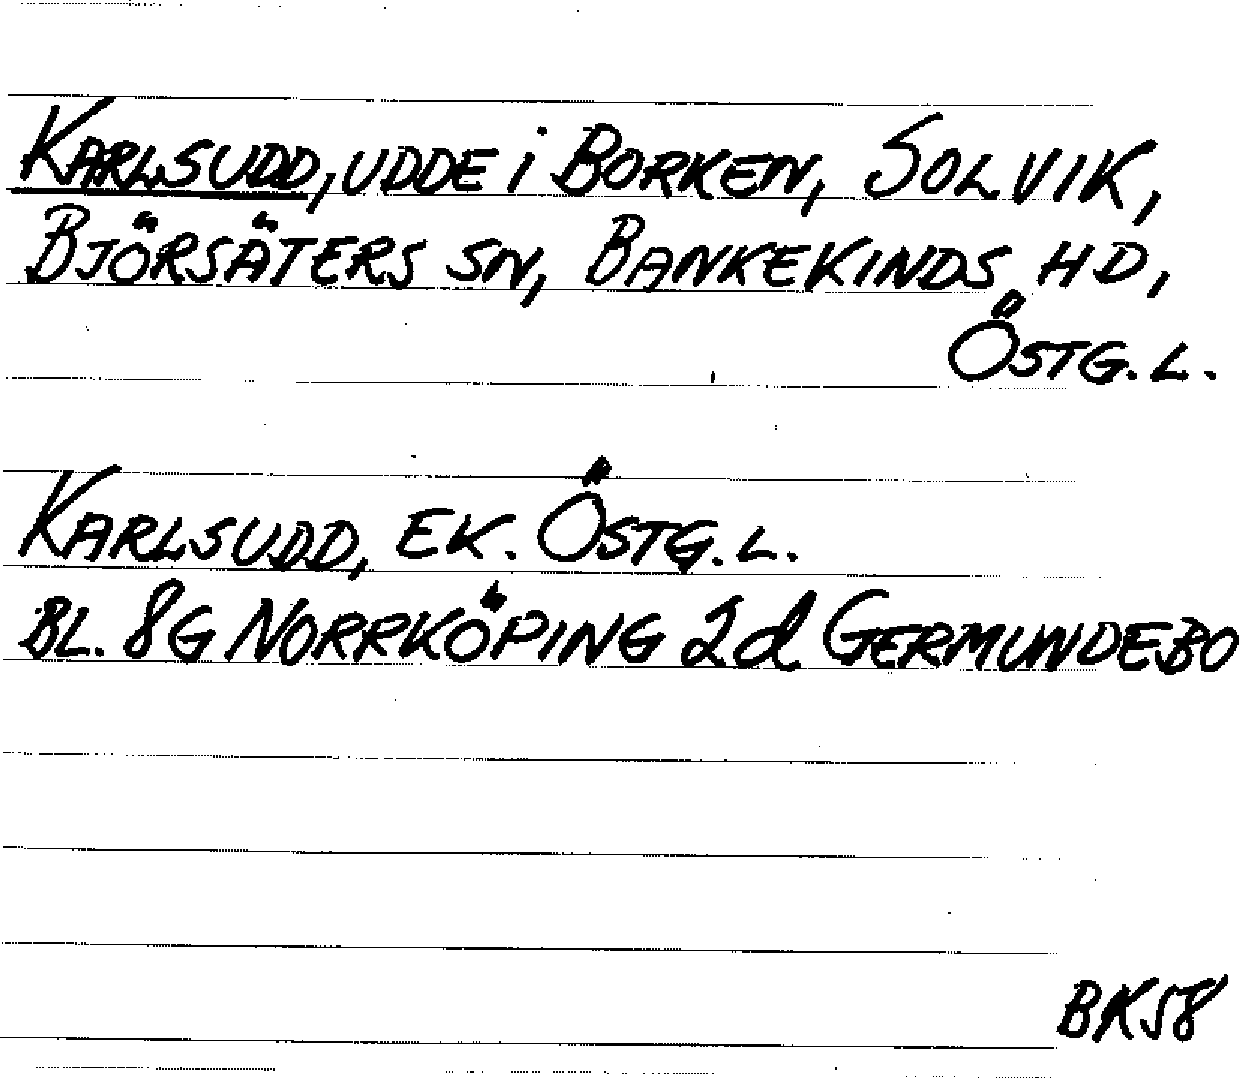 KARLSUDD, UDDE i BORKEN, SOLVIK,
BJÖRSÄTERS SN, BANKEKINDS HD,
ÖSTG. L.
KARLSUDD, EK. ÖSTG. L.
BL. 8G NORRKÖPING 2d GERMUNDEBO
BK58